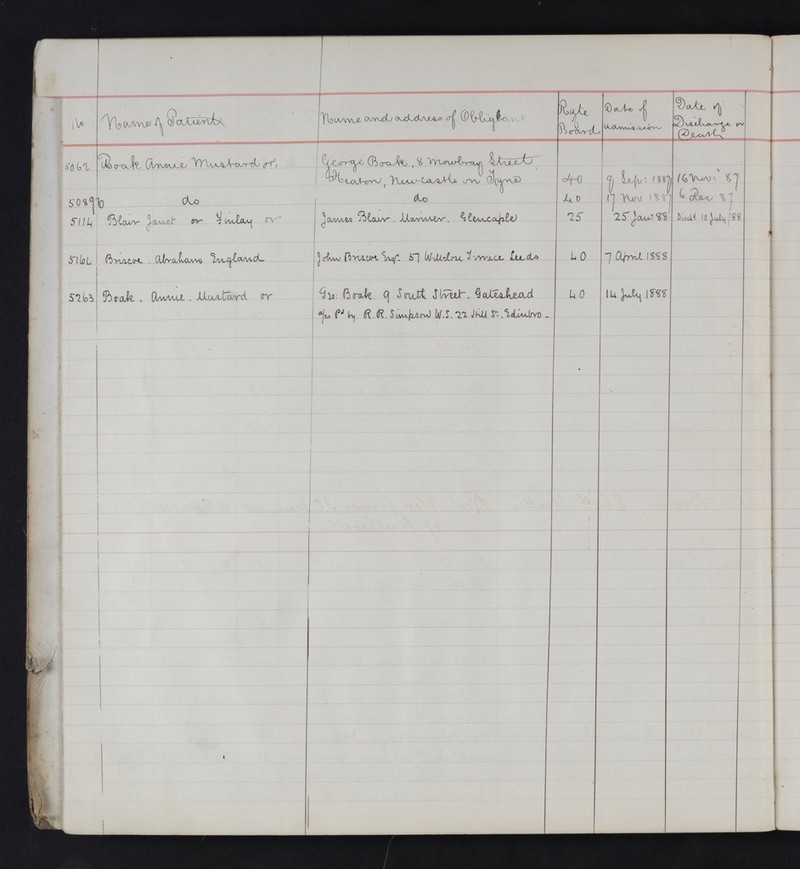 No Name of Patient Name and address of Obligant Rate Board Date of admission Date of Discharge or Death
5062 Boak Annie Mustard or, George Boak, 8 Mowbray Street
Heaton, Newcastle on Tyne 40 9 Sep: 1887 16 Nov: 87
5089 do do 40 17 Nov 1887 6 Dec 87
5114 Blair Janet or Finlay or James Blair. Mariner. Glencaple 25 25 Jany 88 10 July /88
5164 Briscoe. Abraham England John Briscoe Esqr. 57 Terrace Leeds 40 7 April 1888
5263 Boak. Annie. Mustard or Geo: Boak. 9 South Street. Gateshead 40 14 July 1888
a/cs Pd by R. R. Simpson W.S. 22 Hill St. Edinbro -